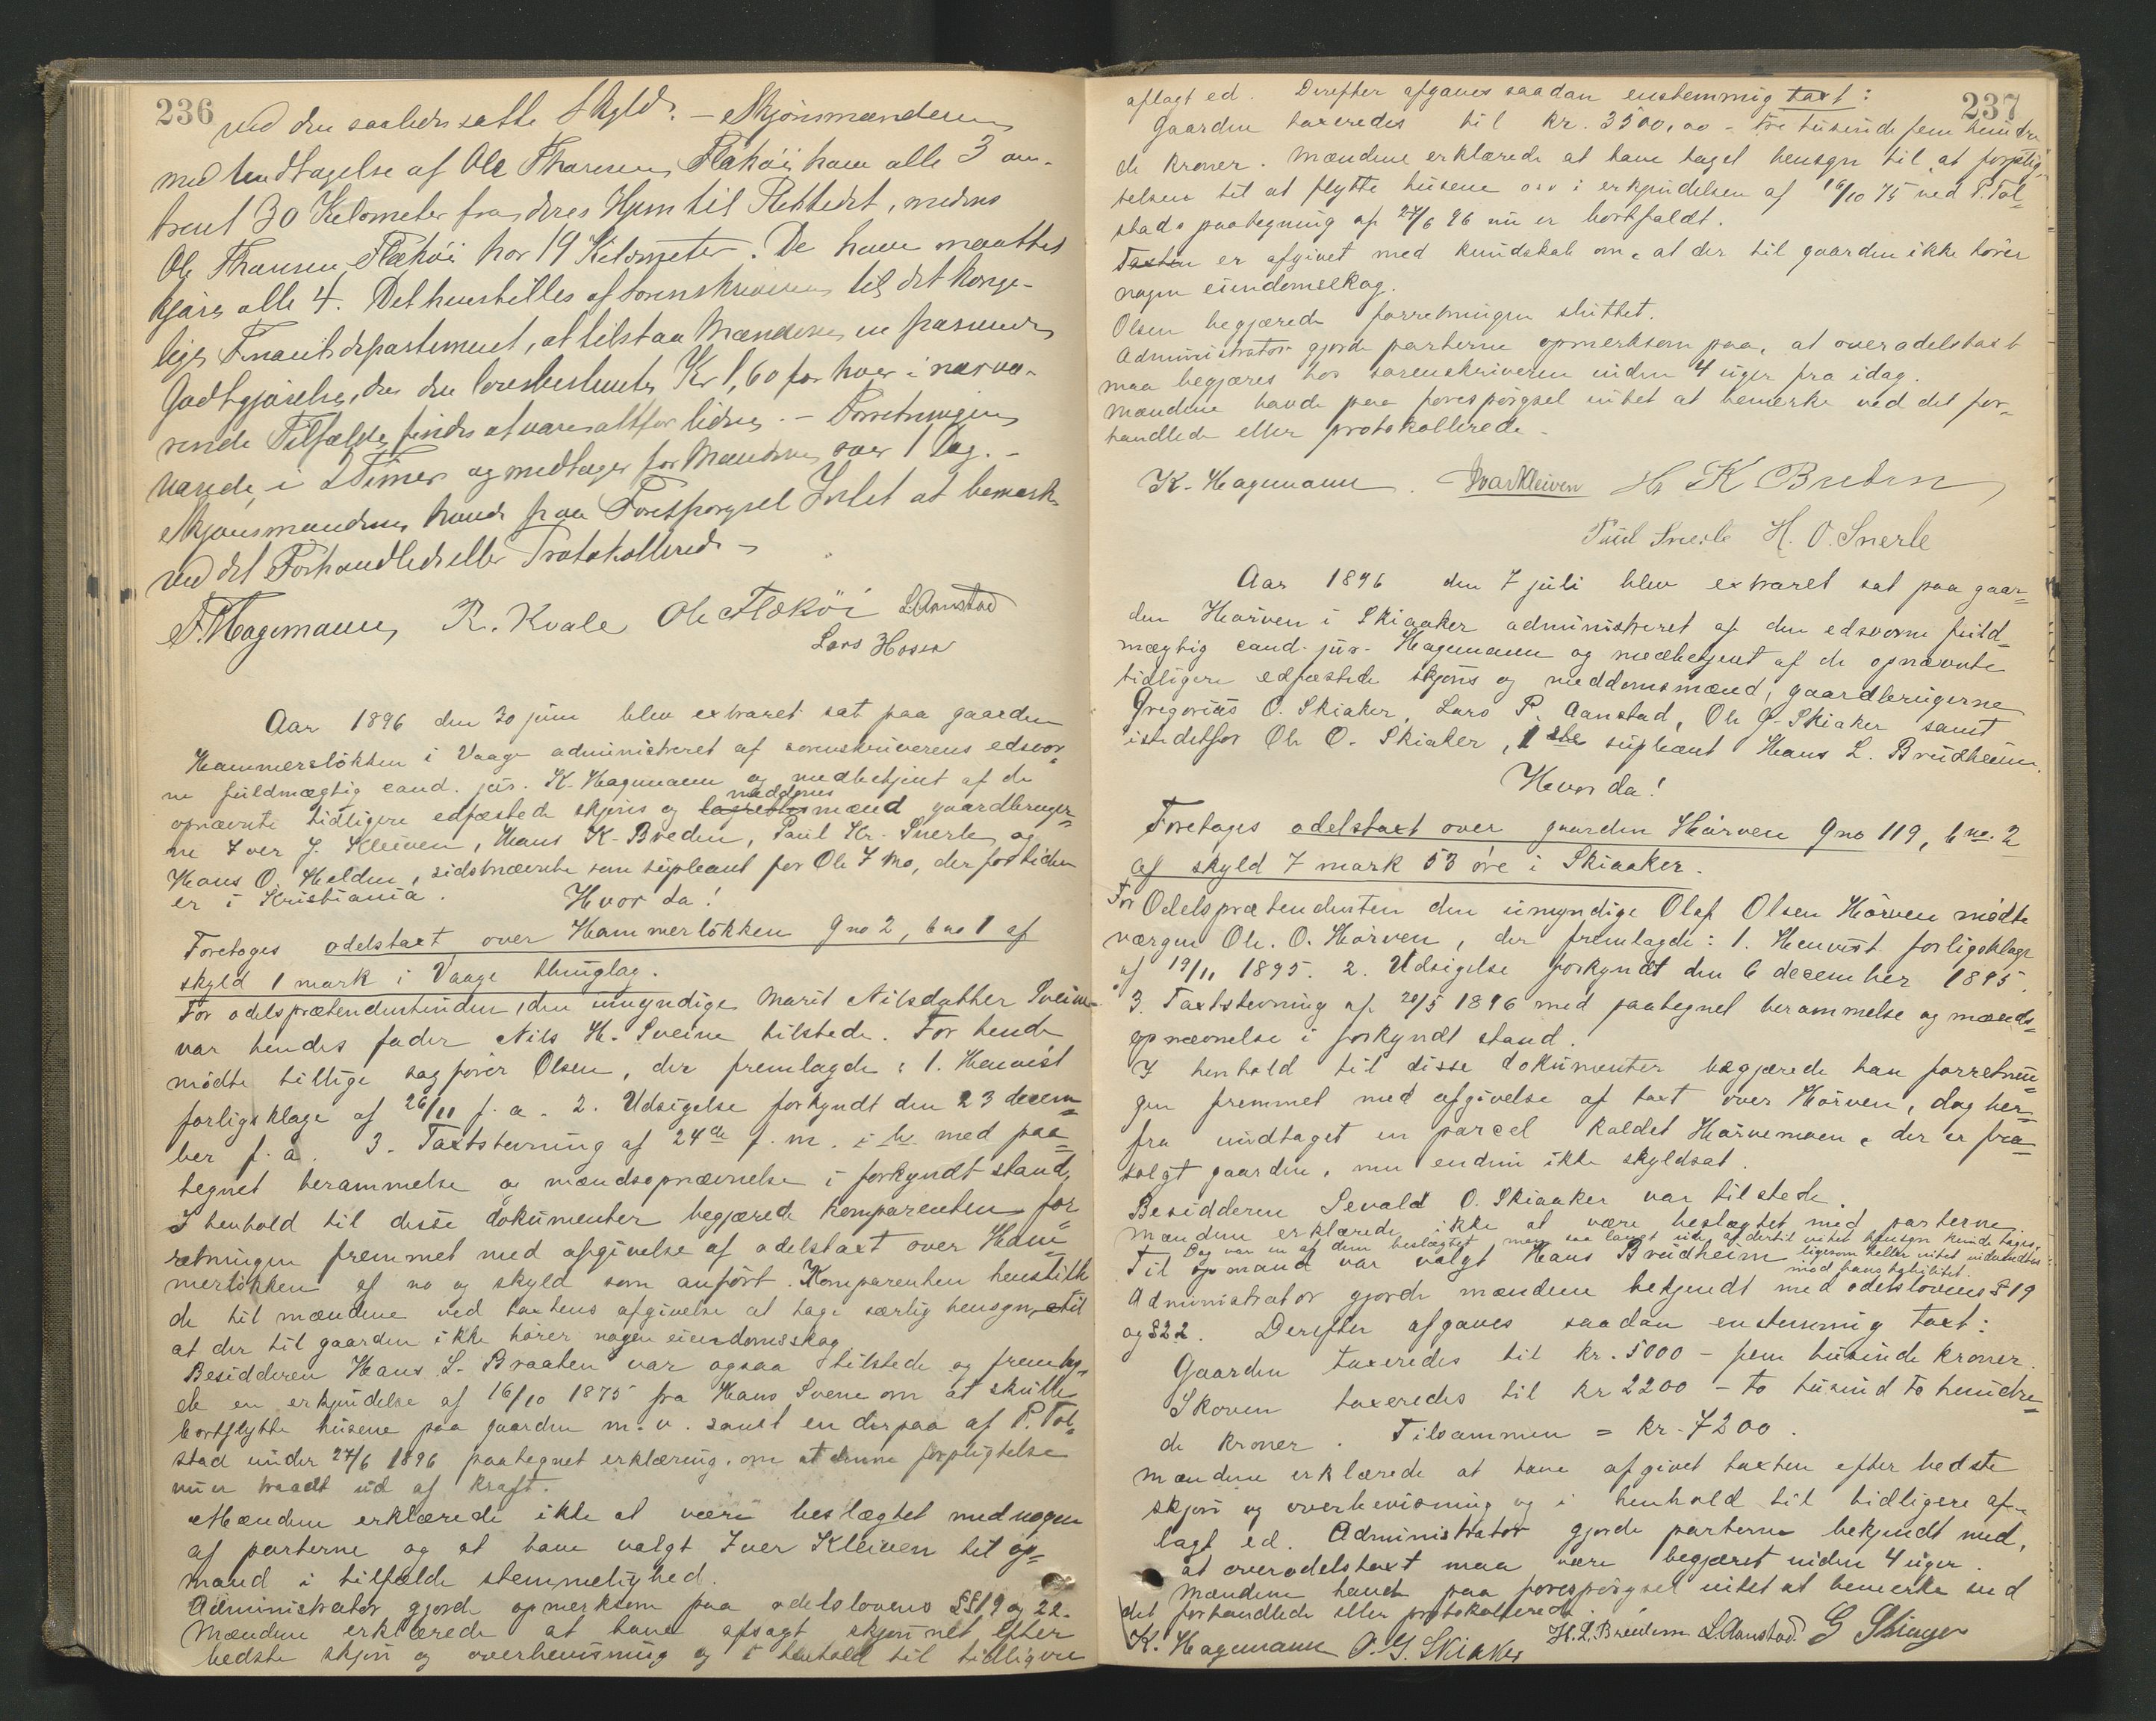 236
ved den saaledes satte Skyld. – Skjönsmændene
med Undtagelse af Ole Thoresen Flækøi have alle 3 om-
trent 30 Kilometer fra deres Hjem til Rettedet, medens
Ole Thoresen Flækøi har 19 Kilometer. De have maattet
kjøre alle 4. Det henstilles af Sorenskriveren til det konge-
lige Finantsdepartement, at tilstaa Mændene en passende
Godtgjørelse, da den lovbestemte Kr 1,60 for hver i nærvæ-
rende Tilfælde findes at være altfor liden. – Forretningen
varede i 2 Timer og medtager for Mændene over 1 Dag. –
Skjønsmændene havde paa Forespørgsel Intet at bemærke
ved det Forhandlede eller Protokollerede –
F. Hagemann R. Kvale Ole Flækøi L Aanstad
Lars Hosen
Aar 1896 den 30 juni blev extraret sat paa gaarden
Hammersløkken i Vaage administreret af sorenskriverens edsvor=
ne fuldmægtig cand. jur. K. Hagemann og medbetjent af de
opnævnte tidligere edfæstede skjøns og lagrettes meddomsmænd gaardbruger=
ne Iver J. Kleiven, Hans K. Breden, Paul Kr. Snerle og
Hans O. Melden, sidstnævnte som supleant for Ole I Mo, der for tiden
er i Kristiania. Hvor da!
Foretoges odelstaxt over Hammerløkken gno 2, bno 1 af
skyld 1 mark i Vaage thinglag.
For odelsprætendentinden, den umyndige Marit Nilsdatter Sveine
var hendes fader Nils H. Sveine tilstede. For hende
mødte tillige sagfører Olsen, der fremlagde: 1. Henvist
forligsklage af 26/11 f. a. 2. Udsigelse forkyndt den 23 decem=
ber f. a. 3. Taxtstevning af 24de f. m. i h. med paa=
tegnet berammelse og mændsopnævnelse i forkyndt stand.
I henhold til disse dokumenter begjærede komparenten for=
retningen fremmet med afgivelse af odelstaxt over Ham=
merløkken af no og skyld som anført. Komparenten henstille=
de til mændene ved taxtens afgivelse at tage særlig hensyn til
at der til gaarden ikke hører nogen eiendomsskog.
Besidderen Hans L. Braaten var ogsaa tilstede og fremlag=
de en erkjendelse af 16/10 1875 fra Hans Svene om at skulle
bortflytte husene paa gaarden m. v. samt en derpaa af P. Tol=
stad under 27/6 1896 paategnet erklæring om at denne forpligtelse
nu er traadt ud af kraft.
Mændene erklærede ikke at være beslægtet med nogen
af parterne og at have valgt Iver Kleiven til op=
mand i tilfælde stemmelighed.
Administrator gjorde opmerksom paa odelslovens §§19 og 22.
Mændene erklærede at have afsagt skjønnet efter
bedste skjøn og overbevisning og i henhold til tidligere
237
aflagt ed. Derefter afgaves saadan enstemmig taxt:
Gaarden taxeredes til kr. 3500,00 – tre tusinde fem hundre
de kroner. Mændene erklærede at have taget hensyn til, at forplig=
telsen til at flytte husene osv i erkjendelsen af 16/10 75 ved P. Tol=
stads paategning af 27/6 96 nu er bortfaldt.
Taxten er afgivet med kundskab om, at der til gaarden ikke hører
nogen eiendomsskog.
Olsen begjærede forretningen sluttet.
Administrator gjorde parterne opmerksom paa, at overodelstaxt
maa begjæres hos sorenskriveren inden 4 uger fra idag.
Mændene havde paa forespørgsel intet at bemerke ved det for=
handlede eller protokollerede –
K. Hagemann. Ivar Kleiven H K Breden
Paul Snerle H. O. Snerle
Aar 1896 den 7 juli blev extraret sat paa gaar=
den Hørven i Skiaaker administreret af den edsvorne fuld=
mægtig cand. jur. Hagemann og medbetjent af de opnævnte
tidligere edfæstede skjøns og meddomsmænd, gaardbrugerne
Gregorius O. Skiaker, Lars P. Aanstad, Ole G. Skiaker samt
istedetfor Ole O. Skiaker, 1ste supleant Hans L. Brudheim.
Hvor da!
Foretoges odelstaxt over gaarden Hørven gno 119, bno. 2
af skyld 7 mark 53 øre i Skiaaker.
For Odelsprætendenten den umyndige Olaf Olsen Hørven mødte
værgen Ole. O. Hørven, der fremlagde: 1. Henvist forligsklage
af 19/11 1895. 2. Udsigelse forkyndt den 6 december 1895.
3. Taxtstevning af 20/5 1896 med paategnet berammelse og mænds=
opnævnelse i forkyndt stand.
I henhold til disse dokumenter begjærede han forretnin=
gen fremmet med afgivelse af taxt over Hørven, dog her=
fra undtaget en parcel kaldet Hørvemoen, der er fra=
solgt gaarden, men endnu ikke skyldsat.
Besidderen Sevald O. Skiaaker var tilstede.
Mændene erklærede ikke at være beslægtet med parterne.
Dog var en af dem beslægtet, men saa langt ude, at dertil intet hensyn kunde tages,
Til opmand var valgt Hans Brudheim ligesom heller intet indvendtes
mod hans habilitet.
Administrator gjorde mændene bekjendt med odelslovens §19
og §22. Derefter afgaves saadan enstemmig taxt:
Gaarden taxeredes til kr. 5000 – fem tusinde kroner.
Skoven taxeredes til kr 2200 – to tusind to hundre=
de kroner. Tilsammen = kr. 7200.
Mændene erklærede at have afgivet taxten efter bedste
skjøn og overbevisning og i henhold til tidligere af=
lagt ed. Administrator gjorde parterne bekjendt med,
at overodelstaxt maa være begjæret inden 4 uger.
Mændene havde paa forespørgsel intet at bemerke ved
det forhandlede eller protokollerede
K. Hagemann O. G. Skiaker H. L. Breidem L. Aanstad. G Skiager